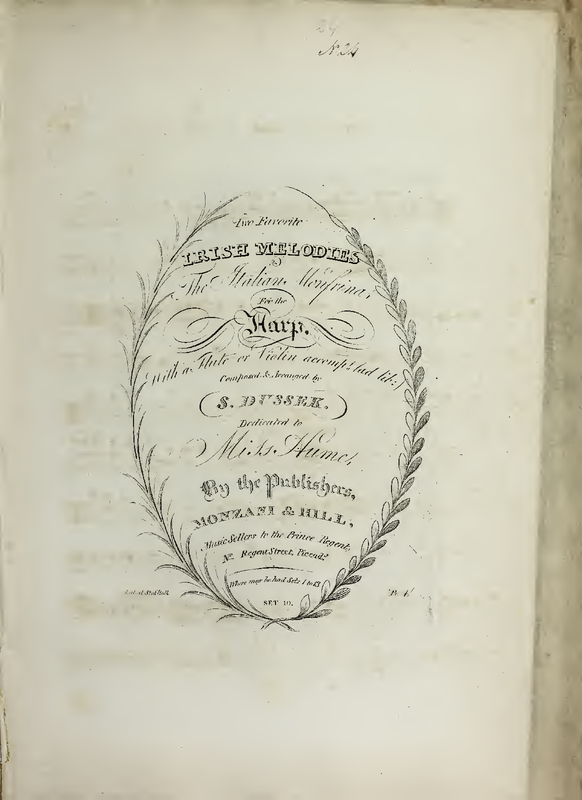 24
No. 24
Two Favorite
IRISH MELODIES
&
The Italian Monfrina,
For the
Harp,
With a Flute or Violin accompt. (ad lib:)
Composed & Arranged by
S. DUSSEK.
Dedicated to
Miss Hume,
By the Publishers,
MONZANI & HILL,
Music Sellers to the Prince Regent,
Regent Street, Piccady.
Where may be had Sets 1 to 13
SET 10.
Ent. at Sta. Hall.
Pr.